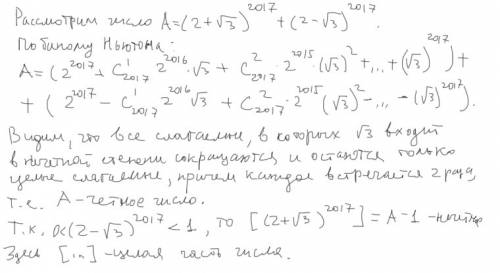 Рассмотрим число A=(2+√3)^2017 + (2-√3)^2017.
По биному Ньютона:
A=(2^2017 + C^1_2017 2^2016·√3 + C^2_2017·2^2015·(√3)^2+...+(√3)^2017)+
+(2^2017 - C^1_2017 2^2016 √3 + C^2_2017·2^2015(√3)^2-...-(√3)^2017).
Видим, что все слагаемые, в которых √3 входит
в нечетной степени сокращаются и остаются только
целые слагаемые, причем каждое встречается 2 раза,
т.е. A-четное число.
Т.к. 0<(2-√3)^2017<1, то [(2+√3)^2017]=A-1 -нечетн.
Здесь [...] -целая часть числа.